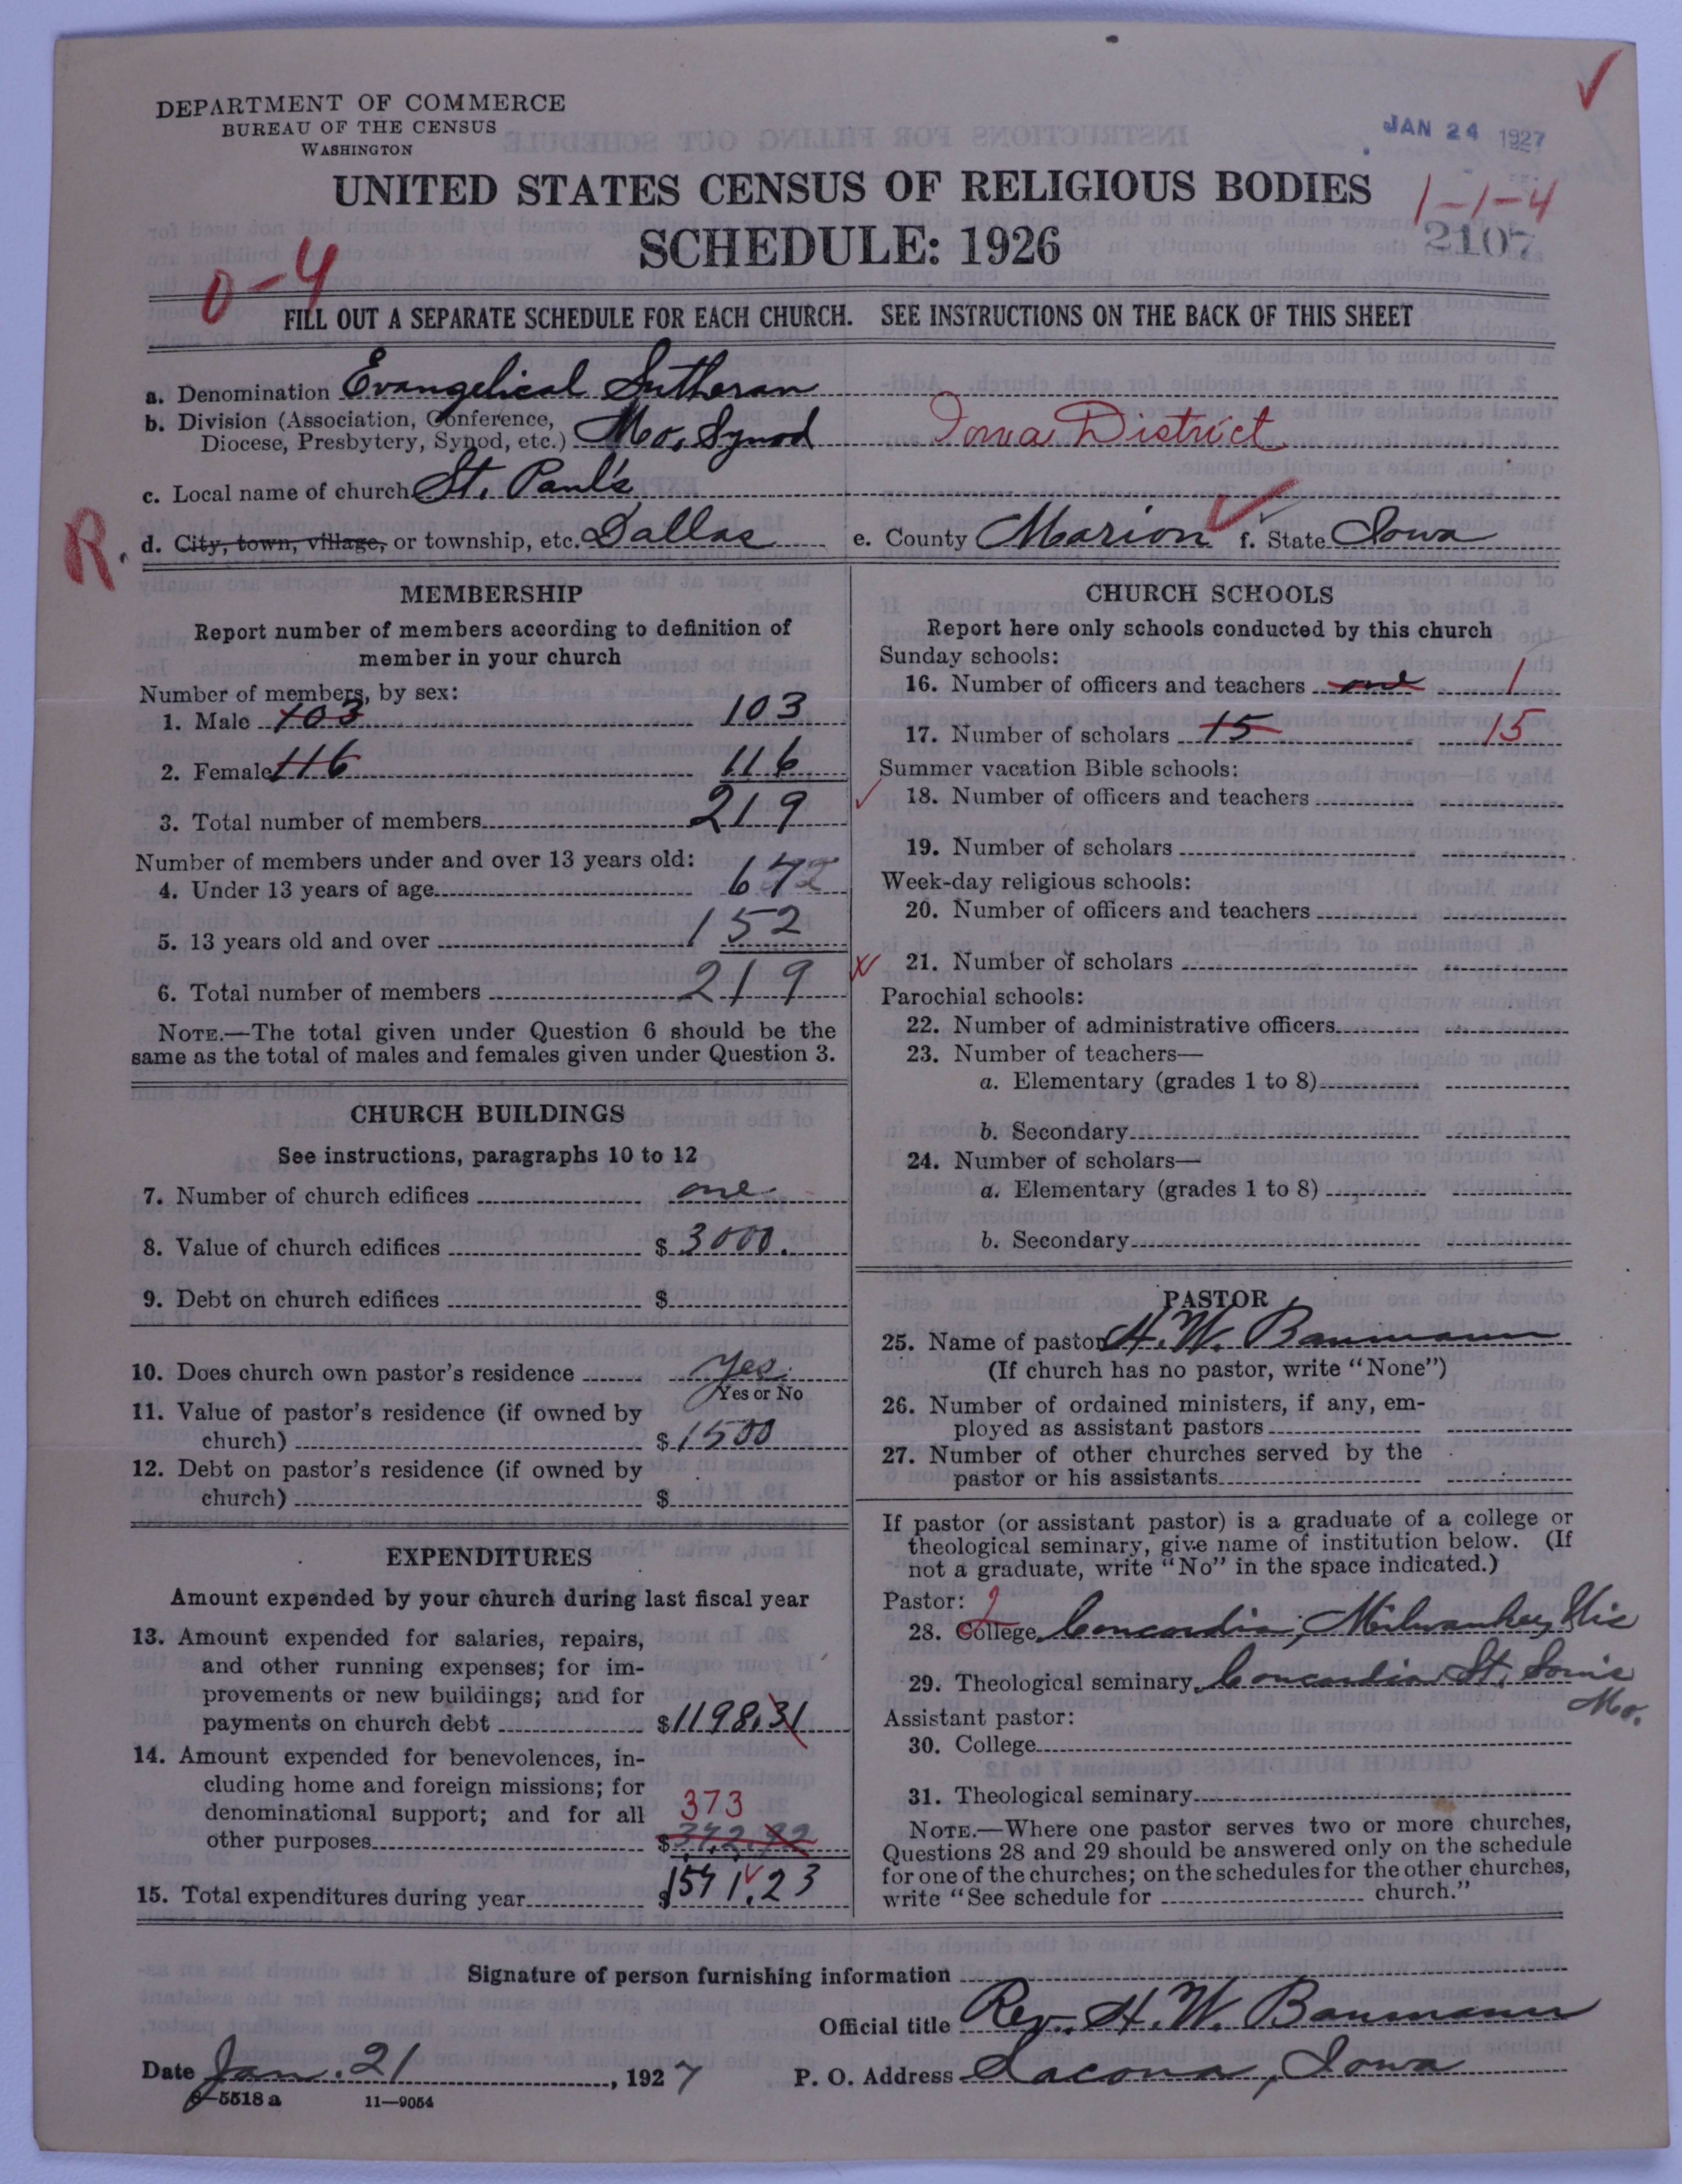 DEPARTMENT OF COMMERCE
BUREAU OF THE CENSUS
WASHINGTON
JAN 24 1927
UNITED STATES CENSUS OF RELIGIOUS BODIES
1-1-4
SCHEDULE: 1926
2107
0-4
FILL OUT A SEPARATE SCHEDULE FOR EACH CHURCH. SEE INSTRUCTIONS ON THE BACK OF THIS SHEET
a. Denomination Evangelical Lutheran
b. Division (Association, Conference,
Diocese, Presbytery, Synod, etc.) Mo. Synod Iowa District
c. Local name of church St. Paul's
R. d. City, town, village, or township, etc. Dallas e. County Marion f. State Iowa
MEMBERSHIP
Report number of members according to definition of
member in your church
Number of members, by sex:
1. Male 103 103
2. Female 116 116
3. Total number of members 219
Number of members under and over 13 years old:
4. Under 13 years of age 67
5. 13 years old and over 152
6. Total number of members 219
NOTE.—The total given under Question 6 should be the
same as the total of males and females given under Question 3.
CHURCH BUILDINGS
See instructions, paragraphs 10 to 12
7. Number of church edifices one
8. Value of church edifices $ 3000.
9. Debt on church edifices $
10. Does church own pastor's residence Yes.
Yes or No
11. Value of pastor's residence (if owned by
church) $ 1500
12. Debt on pastor's residence (if owned by
church) $
EXPENDITURES
Amount expended by your church during last fiscal year
13. Amount expended for salaries, repairs,
and other running expenses; for im-
provements or new buildings; and for
payments on church debt $1198.31
14. Amount expended for benevolences, in-
cluding home and foreign missions; for
denominational support; and for all 373
other purposes $342.92
15. Total expenditures during year $1541.23
CHURCH SCHOOLS
Report here only schools conducted by this church
Sunday schools:
16. Number of officers and teachers one 1
17. Number of scholars 15 15
Summer vacation Bible schools:
18. Number of officers and teachers
19. Number of scholars
Week-day religious schools:
20. Number of officers and teachers
21. Number of scholars
Parochial schools:
22. Number of administrative officers
23. Number of teachers—
a. Elementary (grades 1 to 8)
b. Secondary
24. Number of scholars—
a. Elementary (grades 1 to 8)
b. Secondary
PASTOR
25. Name of pastor H. W. Baumann
(If church has no pastor, write "None")
26. Number of ordained ministers, if any, em-
ployed as assistant pastors
27. Number of other churches served by the
pastor or his assistants
If pastor (or assistant pastor) is a graduate of a college or
theological seminary, give name of institution below. (If
not a graduate, write "No" in the space indicated.)
Pastor: 2
28. College Concordia, Milwaukee, Wis
29. Theological seminary Concordia St. Louis
Mo.
Assistant pastor:
30. College
31. Theological seminary
NOTE.—Where one pastor serves two or more churches,
Questions 28 and 29 should be answered only on the schedule
for one of the churches; on the schedules for the other churches,
write "See schedule for church."
Signature of person furnishing information
Official title Rev. H. W. Baumann
Date Jan. 21, 1927 P. O. Address Lacona, Iowa
8-5518 a 11-9054